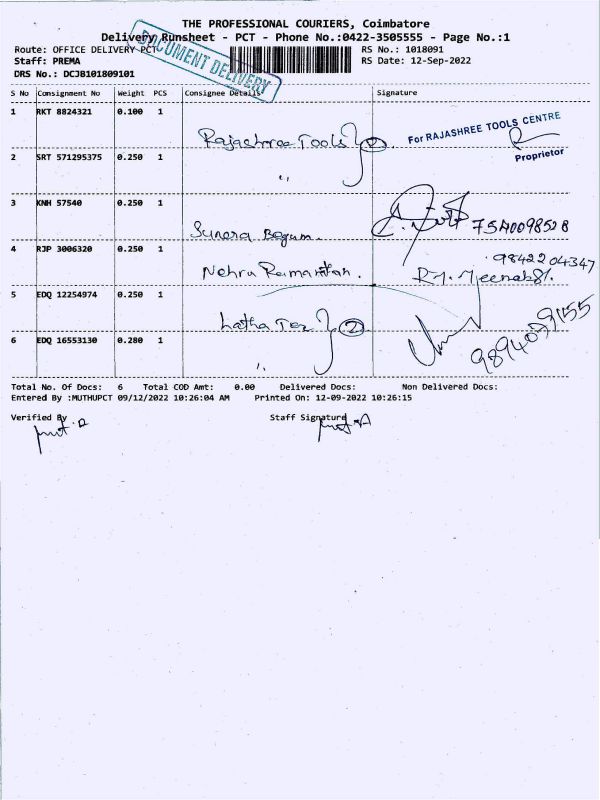 THE PROFESSIONAL COURIERS, Coimbatore
Delivery Runsheet - PCT - Phone No.:0422-3505555 - Page No.:1
Route: OFFICE DELIVERY-PCT
RS No.: 1018091
Staff: PREMA
RS Date: 12-Sep-2022
DRS No.: DCJB101809101
DOCUMENT DELIVERY
S No Consignment No Weight PCS Consignee Details Signature
1 RKT 8824321 0.100 1
Rajashree Tools 2
For RAJASHREE TOOLS CENTRE
Proprietor
2 SRT 571295375 0.250 1
3 KNH 57540 0.250 1
Sunera Begum.
4 RJP 3006320 0.250 1
9842204347
5 EDQ 12254974 0.250 1
Latha Tex 2
6 EDQ 16553130 0.280 1
Total No. Of Docs: 6 Total COD Amt: 0.00 Delivered Docs: Non Delivered Docs:
Entered By :MUTHUPCT 09/12/2022 10:26:04 AM Printed On: 12-09-2022 10:26:15
Verified By
Staff Signature